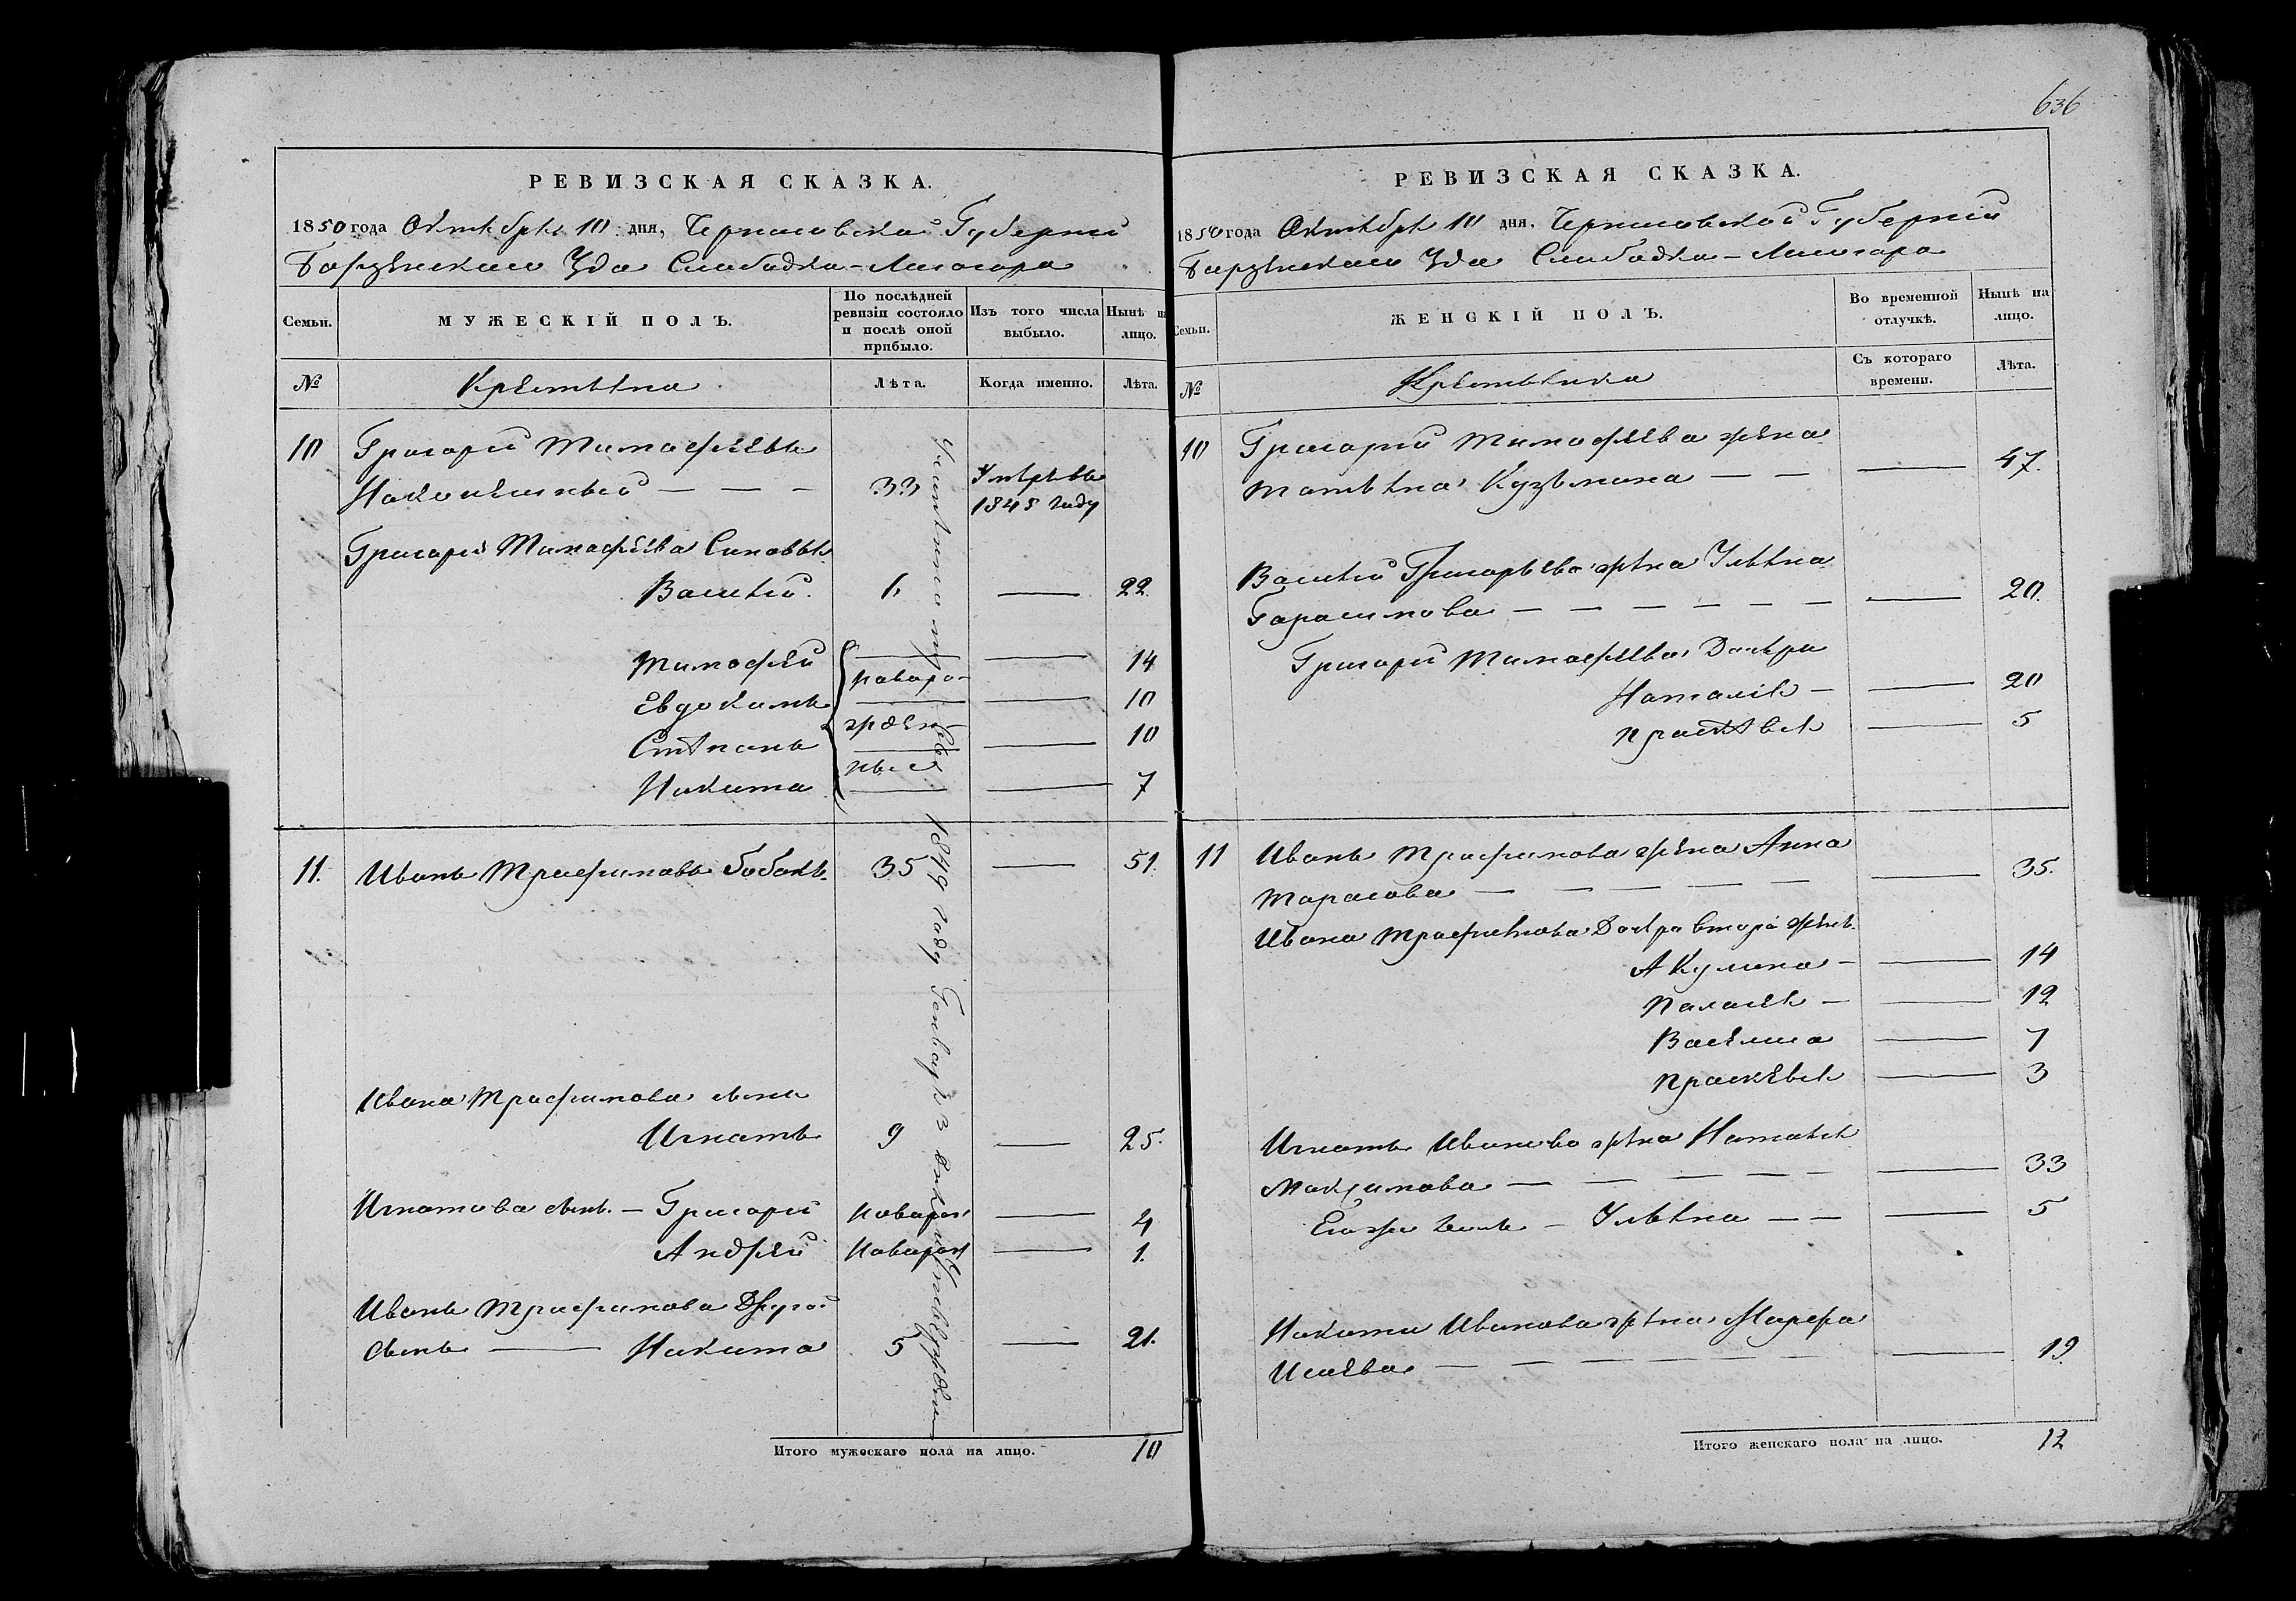 636
РЕВИЗСКАЯ СКАЗКА.
1850 года Октября 10 дня, Черниговской Губернии
Борзенскаго Уѣзда Слабодка-Лисогора
Семьи.
МУЖЕСКІЙ ПОЛЪ.
По послѣдней ревизіи состояло и послѣ оной прибыло.
Изъ того числа выбыло.
Нынѣ на лицо.
№
Лѣта.
Когда именно.
Лѣта.
10 Григорій Тимофѣевъ
33 Умеръ въ 1845 году
Григорія Тимофѣева Синовья
Василій 6 22.
Тимофей 14
Евдокимъ 10
Степанъ 10
Никита 7
новорожденныя
11. Иванъ Трафимовъ Бобокъ 35 51.
Ивана Трафимова сынъ
Игнатъ 9 25.
Игнатова сынъ Григорій новорож 4
Андрей новорож 1.
Иванъ Трафимова Другой
сынъ Никита 5 21.
1849 году
Итого мужескаго пола на лицо. 10
РЕВИЗСКАЯ СКАЗКА.
1850 года Октября 10 дня, Черниговской Губерніи
Борзенскаго Уѣзда Слабодка-Лисогора
Семьи.
ЖЕНСКІЙ ПОЛЪ.
Во временной отлучкѣ.
Нынѣ на лицо.
№
Съ котораго времени.
Лѣта.
10 Григорій Тимофеева жена
Татьяна Кузьмина 47.
Василій Григорьева жена Ульяна
Гарасимова 20.
Григорій Тимофеева Дочьри
Наталія 20
Прасковья 5
11 Иванъ Трафимова жена Анна
Тарасова 35.
Ивана Трафимова Дочери втора жены
Акулина 14
Палагея 12
Василиса 7
Прасковья 3
Игнатъ Иванова жена Наталья
Максимова 33
Его же дочь Ульяна 5
Никита Иванова жена Марфа
Исаева 19.
Итого женскаго пола на лицо. 12